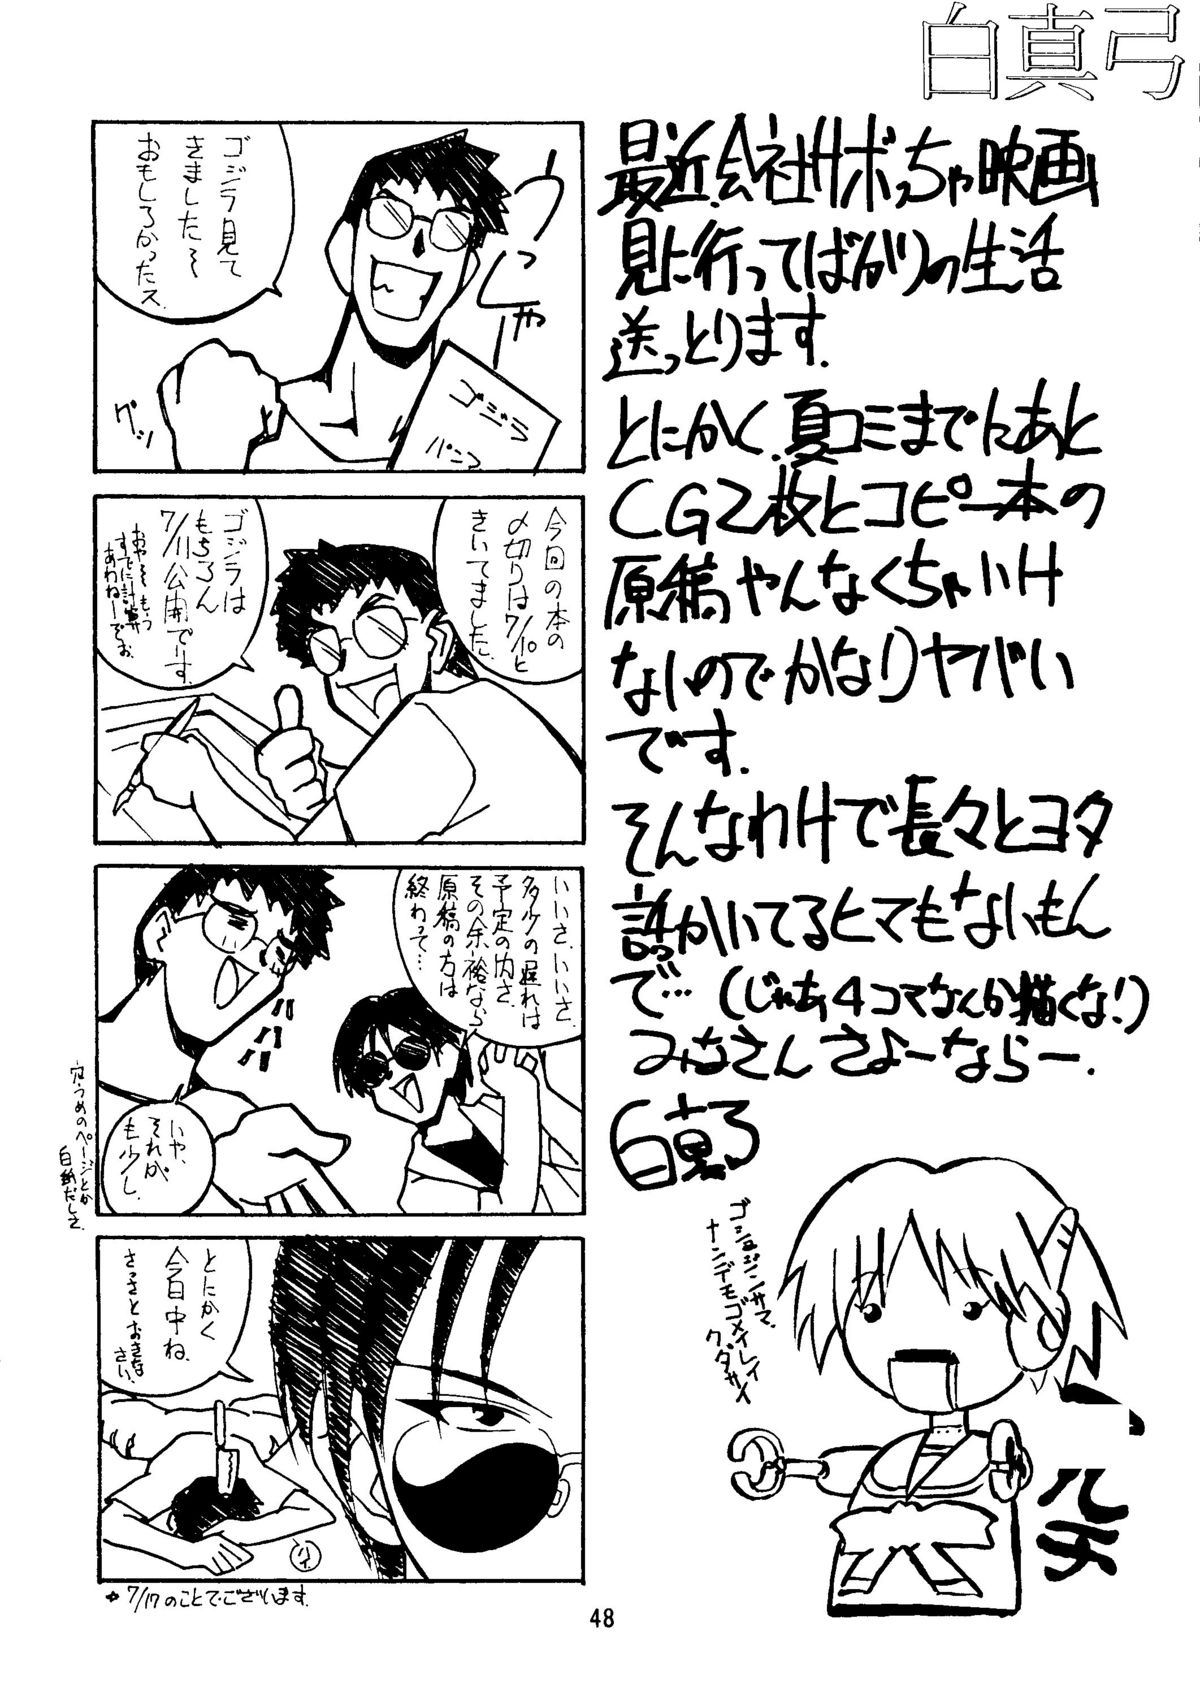 白真弓
最近、会社サボっちゃ映画
見に行ってばかりの生活
送っとります.
とにかく、夏コミまでにあと
CG2枚とコピー本の
原稿やんなくちゃいけ
ないのでかなりヤバい
です.
そんなわけで長々とヨタ
話かいてるヒマもないもん
で…(じゃあ4コマなんか描くな!)
みなさん さよーならー.
白真弓
ゴシュジンサマ、
ナンデモゴメイレイ
クダサイ
マルチ
ゴジラ見て
きました〜
おもしろかったス.
うっしゃー
グッ
ゴジラ
パンフ
今回の本の
〆切りは7/10と
きいてました.
ゴジラは
もちろん
7/11公開です.
おやぁそもそも
すでに計算
あわねーでやんの
いいさ、いいさ.
多少の遅れは
予定の内さ.
その余裕なら
原稿の方は
終わって…
ハハハ
いや、
それが
も少し.
穴うめのページとか
白紙だしさ.
とにかく
今日中ね.
さっさとおきな
さい.
☆7/17のことでございます.
48